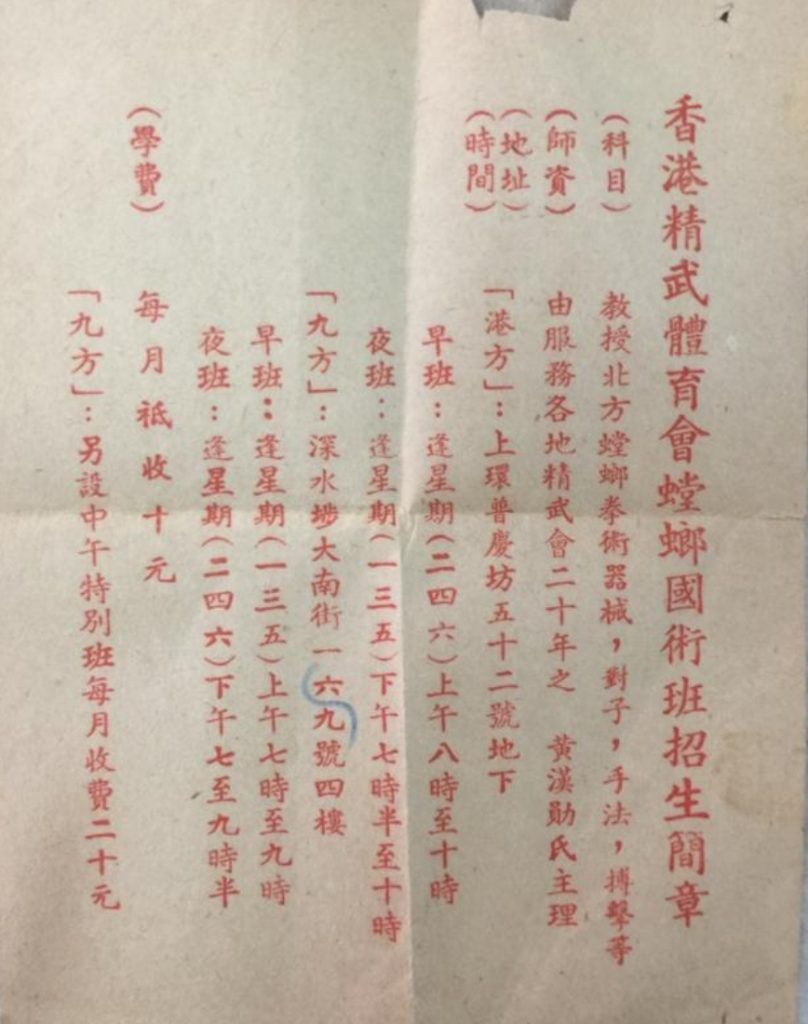 香港精武體育會螳螂國術班招生簡章
（科目）　教授北方螳螂拳術器械，對子，手法，搏擊等
（師資）　由服務各地精武會二十年之　黃漢勛氏主理
（地址）　「港方」：上環普慶坊五十二號地下
（時間）　早班：逢星期（二四六）上午八時至十時
夜班：逢星期（一三五）下午七時半至十時
「九方」：深水埗大南街一六九號四樓
早班：逢星期（一三五）上午七時至九時
夜班：逢星期（二四六）下午七至九時半
（學費）　每月祗收十元
「九方」：另設中午特別班每月收費二十元